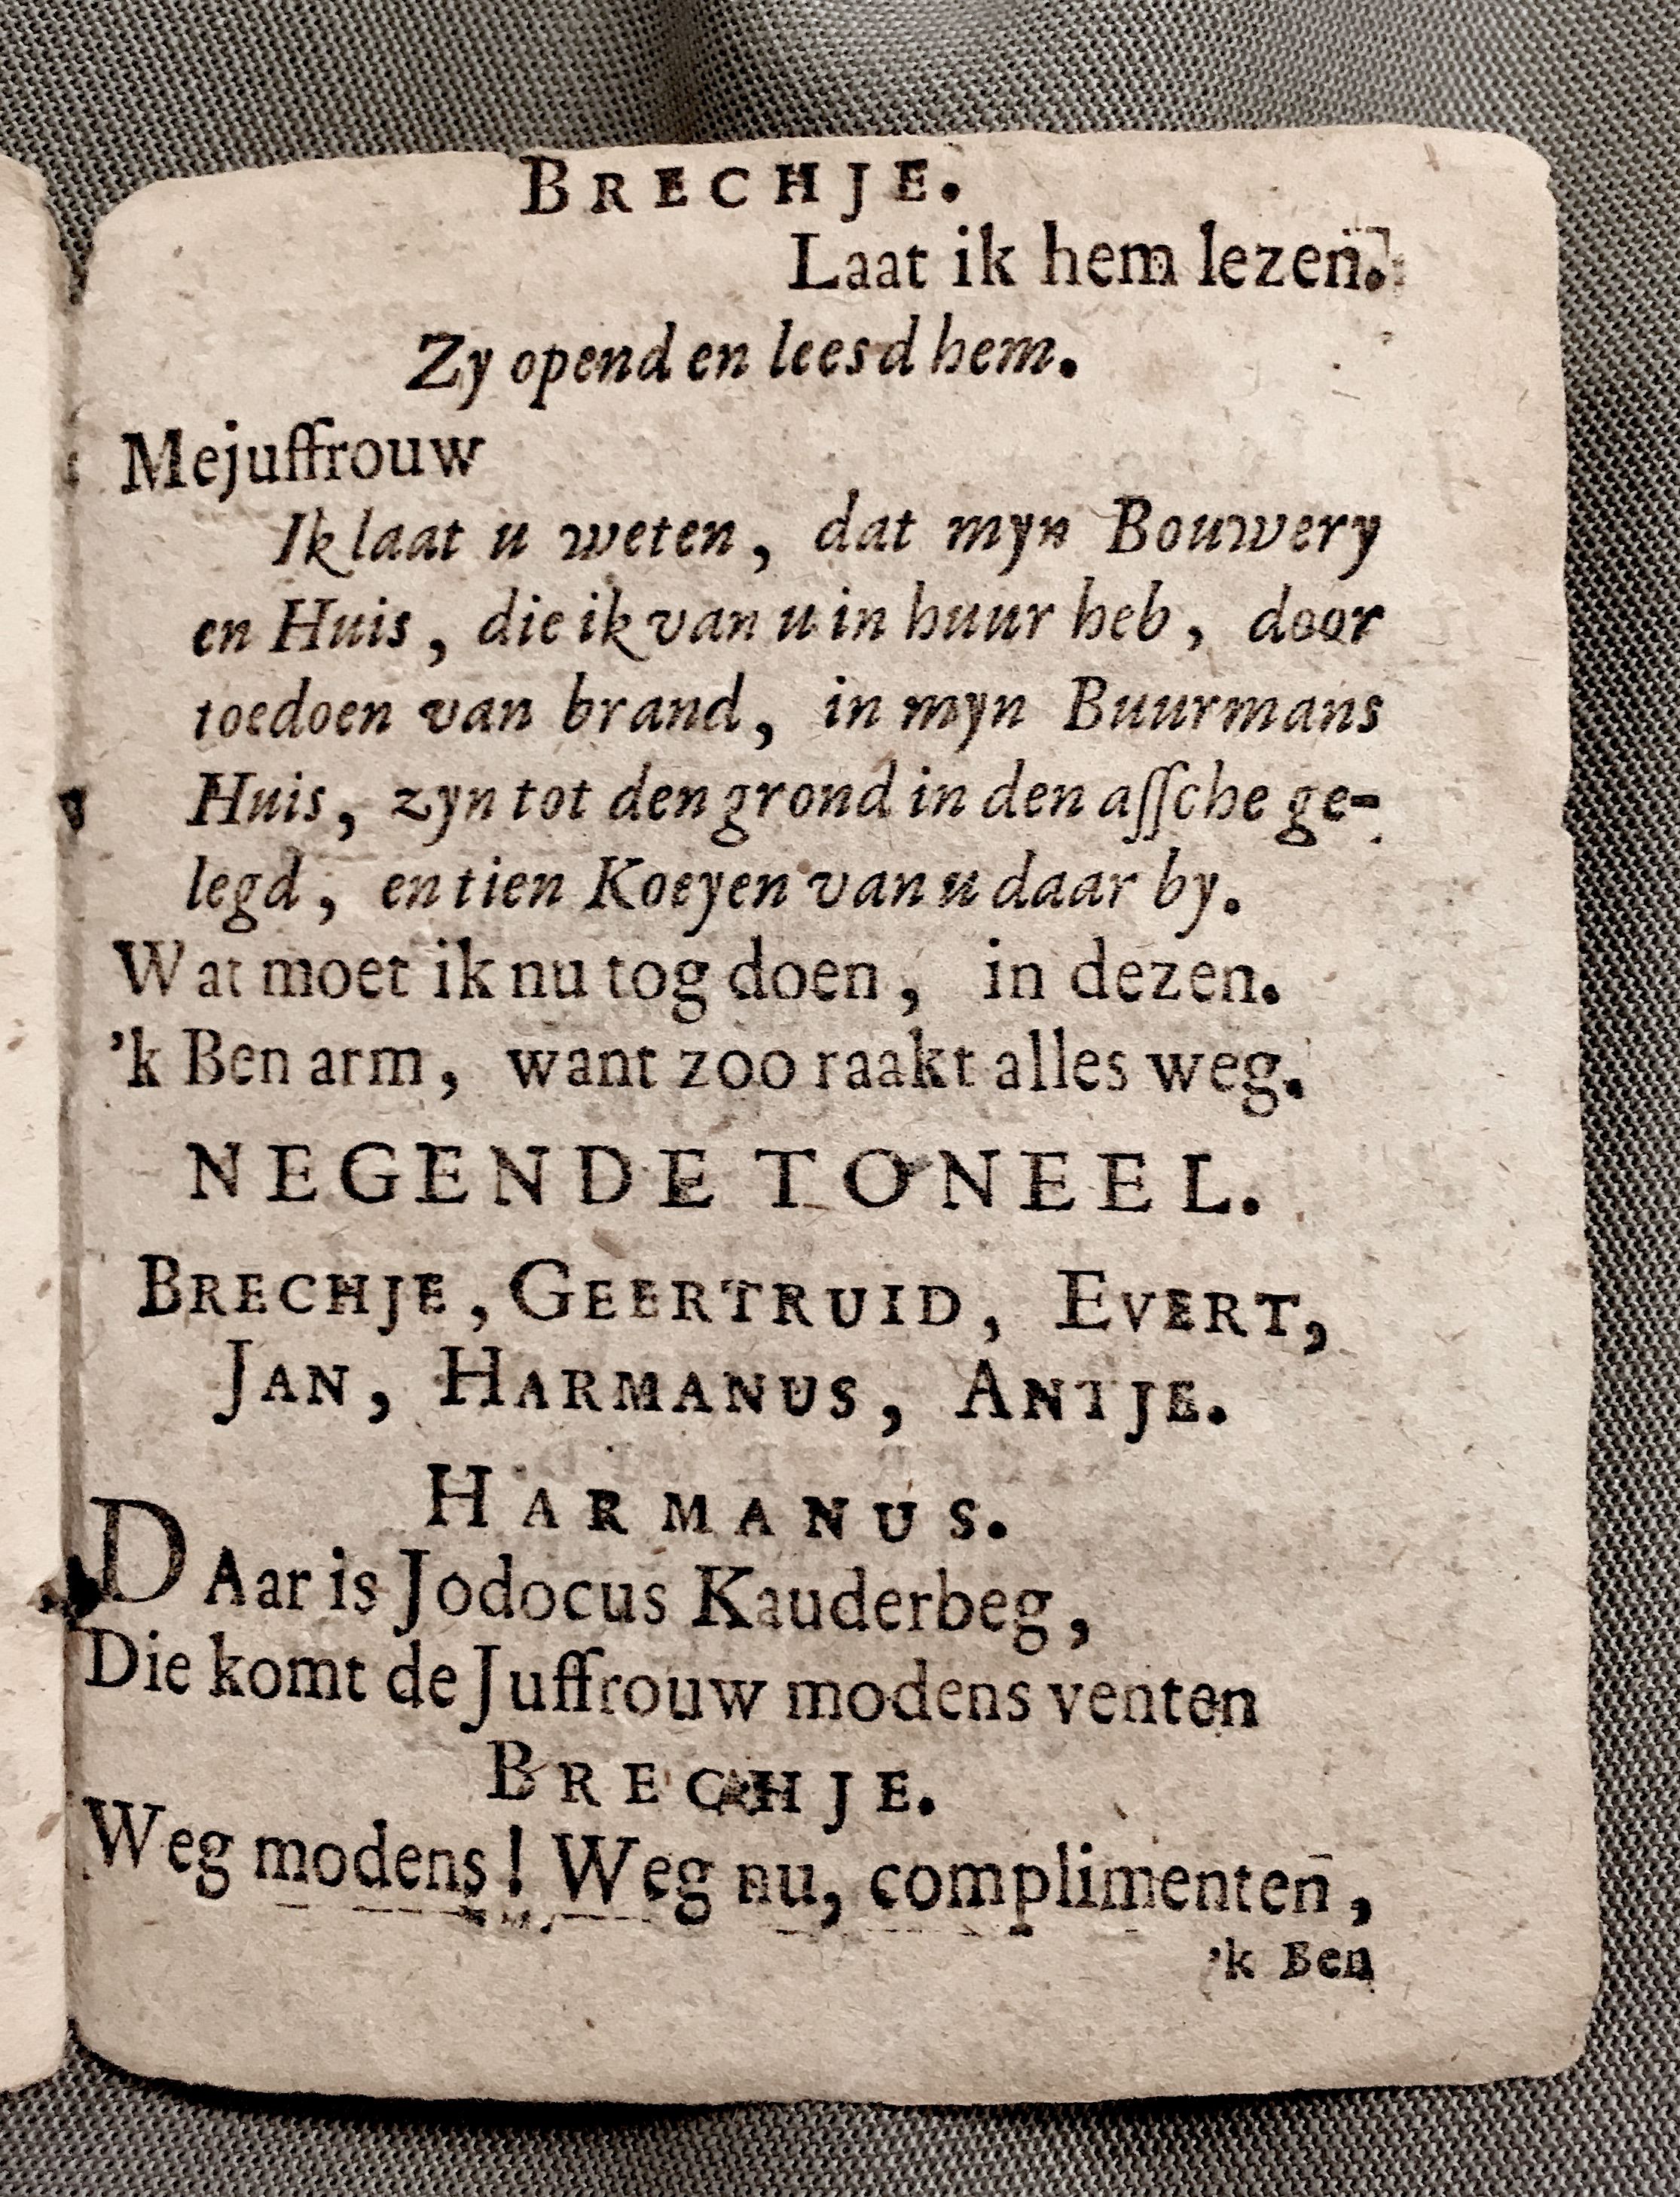 BRECHJE.
Laat ik hem lezen.
Zy opend en leesd hem.
Mejuffrouw
Ik laat u weten, dat myn Bouwery
en Huis, die ik van u in huur heb, door
toedoen van brand, in myn Buurmans
Huis, zyn tot den grond in den aſſche ge-
legd, en tien Koeyen van u daar by.
Wat moet ik nu tog doen, in dezen.
'k Ben arm, want zoo raakt alles weg.
NEGENDE TONEEL.
BRECHJE, GEERTRUID, EVERT,
JAN, HARMANUS, ANTJE.
HARMANUS.
DAar is Jodocus Kauderbeg,
Die komt de Juffrouw modens venten
BRECHJE.
Weg modens! Weg nu, complimenten,
'k Ben